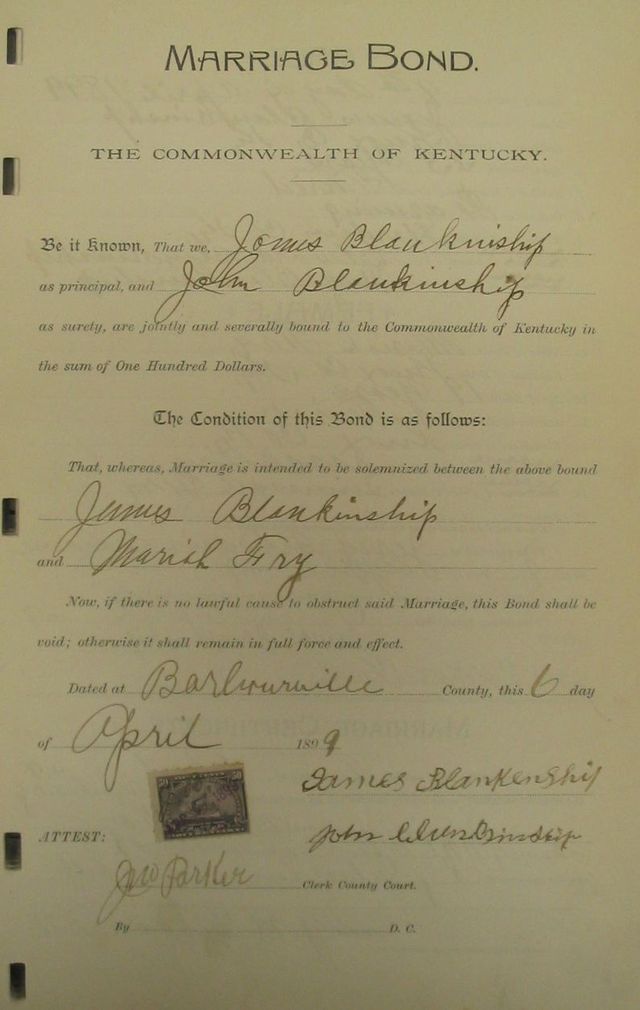 MARRIAGE BOND.
THE COMMONWEALTH OF KENTUCKY.
Be it Known, That we, James Blankinship
as principal, and John Blankinship
as surety, are jointly and severally bound to the Commonwealth of Kentucky in
the sum of One Hundred Dollars.
The Condition of this Bond is as follows:
That, whereas, Marriage is intended to be solemnized between the above bound
James Blankinship
and Mariah Fry
Now, if there is no lawful cause to obstruct said Marriage, this Bond shall be
void; otherwise it shall remain in full force and effect.
Dated at Barbourville County, this 6 day
of April 1899
James Blankenship
ATTEST: John
Parker Clerk County Court.
By D. C.